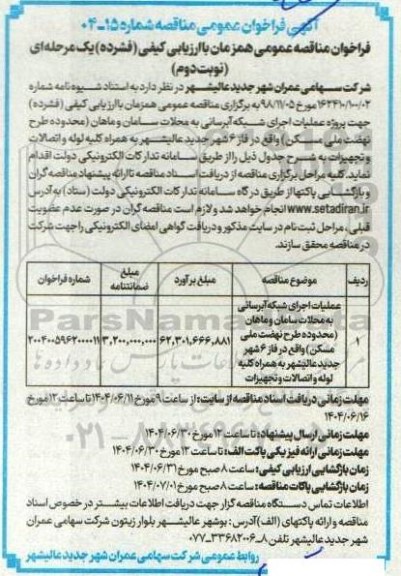 آگهی فراخوان عمومی مناقصه شماره ۱۵-۰۴
فراخوان مناقصه عمومی همزمان با ارزیابی کیفی (فشرده) یک مرحله‌ای
(نوبت دوم)
شرکت سهامی عمران شهر جدید عالیشهر در نظر دارد به استناد شیوه نامه شماره
۱۶۲۴۱۰/۱۰۰/۰۲ مورخ ۹۸/۱۱/۰۵ به برگزاری مناقصه عمومی همزمان با ارزیابی کیفی (فشرده)
جهت پروژه عملیات اجرای شبکه آبرسانی به محلات سامان و ماهان (محدوده طرح
نهضت ملی مسکن) واقع در فاز ۶ شهر جدید عالیشهر به همراه کلیه لوله و اتصالات
و تجهیزات به شرح جدول ذیل را از طریق سامانه تدارکات الکترونیکی دولت اقدام
نماید. کلیه مراحل برگزاری مناقصه از دریافت اسناد مناقصه تا ارائه پیشنهاد مناقصه گران
و بازگشایی پاکتها از طریق درگاه سامانه تدارکات الکترونیکی دولت (ستاد) به آدرس
www.setadiran.ir انجام خواهد شد و لازم است مناقصه گران در صورت عدم عضویت
قبلی، مراحل ثبت نام در سایت مذکور و دریافت گواهی امضای الکترونیکی را جهت شرکت
در مناقصه محقق سازند.
ردیف موضوع مناقصه مبلغ برآورد مبلغ ضمانتنامه شماره فراخوان
۱ عملیات اجرای شبکه آبرسانی
به محلات سامان و ماهان
(محدوده طرح نهضت ملی
مسکن) واقع در فاز ۶ شهر
جدید عالیشهر به همراه کلیه
لوله و اتصالات و تجهیزات
۶۲,۳۰۱,۶۶۶,۸۸۱ ۳,۲۰۰,۰۰۰,۰۰۰ ۲۰۰۴۰۰۵۹۶۲۰۰۰۰۱۱
مهلت زمانی دریافت اسناد مناقصه از سایت: از ساعت ۹ مورخ ۱۴۰۴/۰۶/۱۱ تا ساعت ۱۲ مورخ
۱۴۰۴/۰۶/۱۶
مهلت زمانی ارسال پیشنهاد: تا ساعت ۱۲ مورخ ۱۴۰۴/۰۶/۳۰
مهلت زمانی ارائه فیزیکی پاکت الف: تا ساعت ۱۲ مورخ ۱۴۰۴/۰۶/۳۰
زمان بازگشایی ارزیابی کیفی: ساعت ۸ صبح مورخ ۱۴۰۴/۰۶/۳۱
زمان بازگشایی پاکات مناقصه: ساعت ۸ صبح مورخ ۱۴۰۴/۰۷/۰۱
اطلاعات تماس دستگاه مناقصه گزار جهت دریافت اطلاعات بیشتر در خصوص اسناد
مناقصه و ارائه پاکتهای (الف) آدرس: بوشهر عالیشهر بلوار زیتون شرکت سهامی عمران
شهر جدید عالیشهر تلفن ۸-۳۳۶۸۲۰۰۶-۰۷۷
روابط عمومی شرکت سهامی عمران شهر جدید عالیشهر